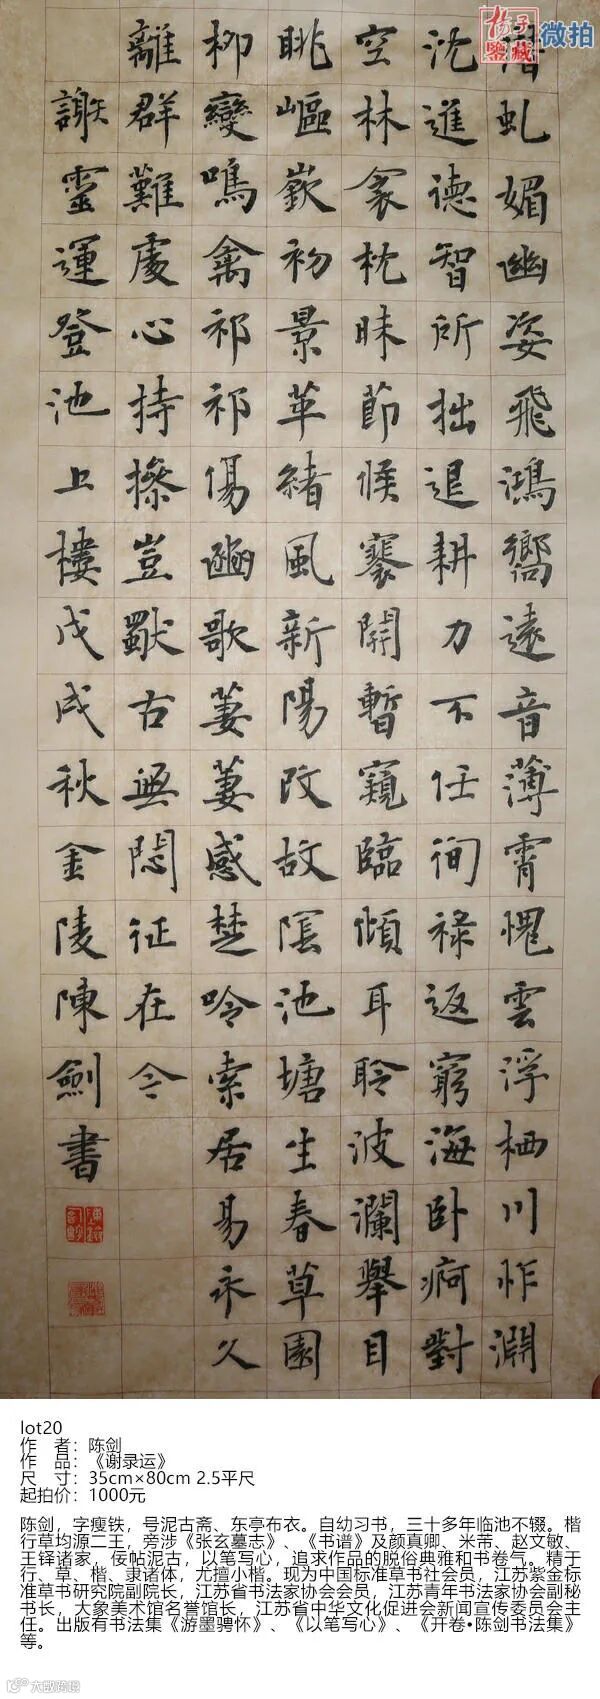 扬子
鑒藏
微拍
潜虬媚幽姿飛鴻嚮遠音薄霄愧雲浮栖川怍淵
沈進德智所拙退耕力不任徇祿返窮海卧痾對
空林衾枕昧節候褰開暫窺臨傾耳聆波瀾舉目
眺嶇嶔初景革緒風新陽改故陰池塘生春草園
柳變鳴禽祁祁傷豳歌萋萋感楚吟索居易永久
離群難處心持操豈獨古無悶征在今
謝靈運登池上樓戊戌秋金陵陳劍書
lot20
作 者：陈剑
作 品：《谢录运》
尺 寸：35cm×80cm 2.5平尺
起拍价：1000元
陈剑，字瘦铁，号泥古斋、东亭布衣。自幼习书，三十多年临池不辍。楷
行草均源二王，旁涉《张玄墓志》、《书谱》及颜真卿、米芾、赵文敏、
王铎诸家，佞帖泥古，以笔写心，追求作品的脱俗典雅和书卷气。精于
行、草、楷、隶诸体，尤擅小楷。现为中国标准草书社会员，江苏紫金标
准草书研究院副院长，江苏省书法家协会会员，江苏青年书法家协会副秘
书长，大象美术馆名誉馆长，江苏省中华文化促进会新闻宣传委员会主
任。出版有书法集《游墨骋怀》、《以笔写心》、《开卷•陈剑书法集》
等。